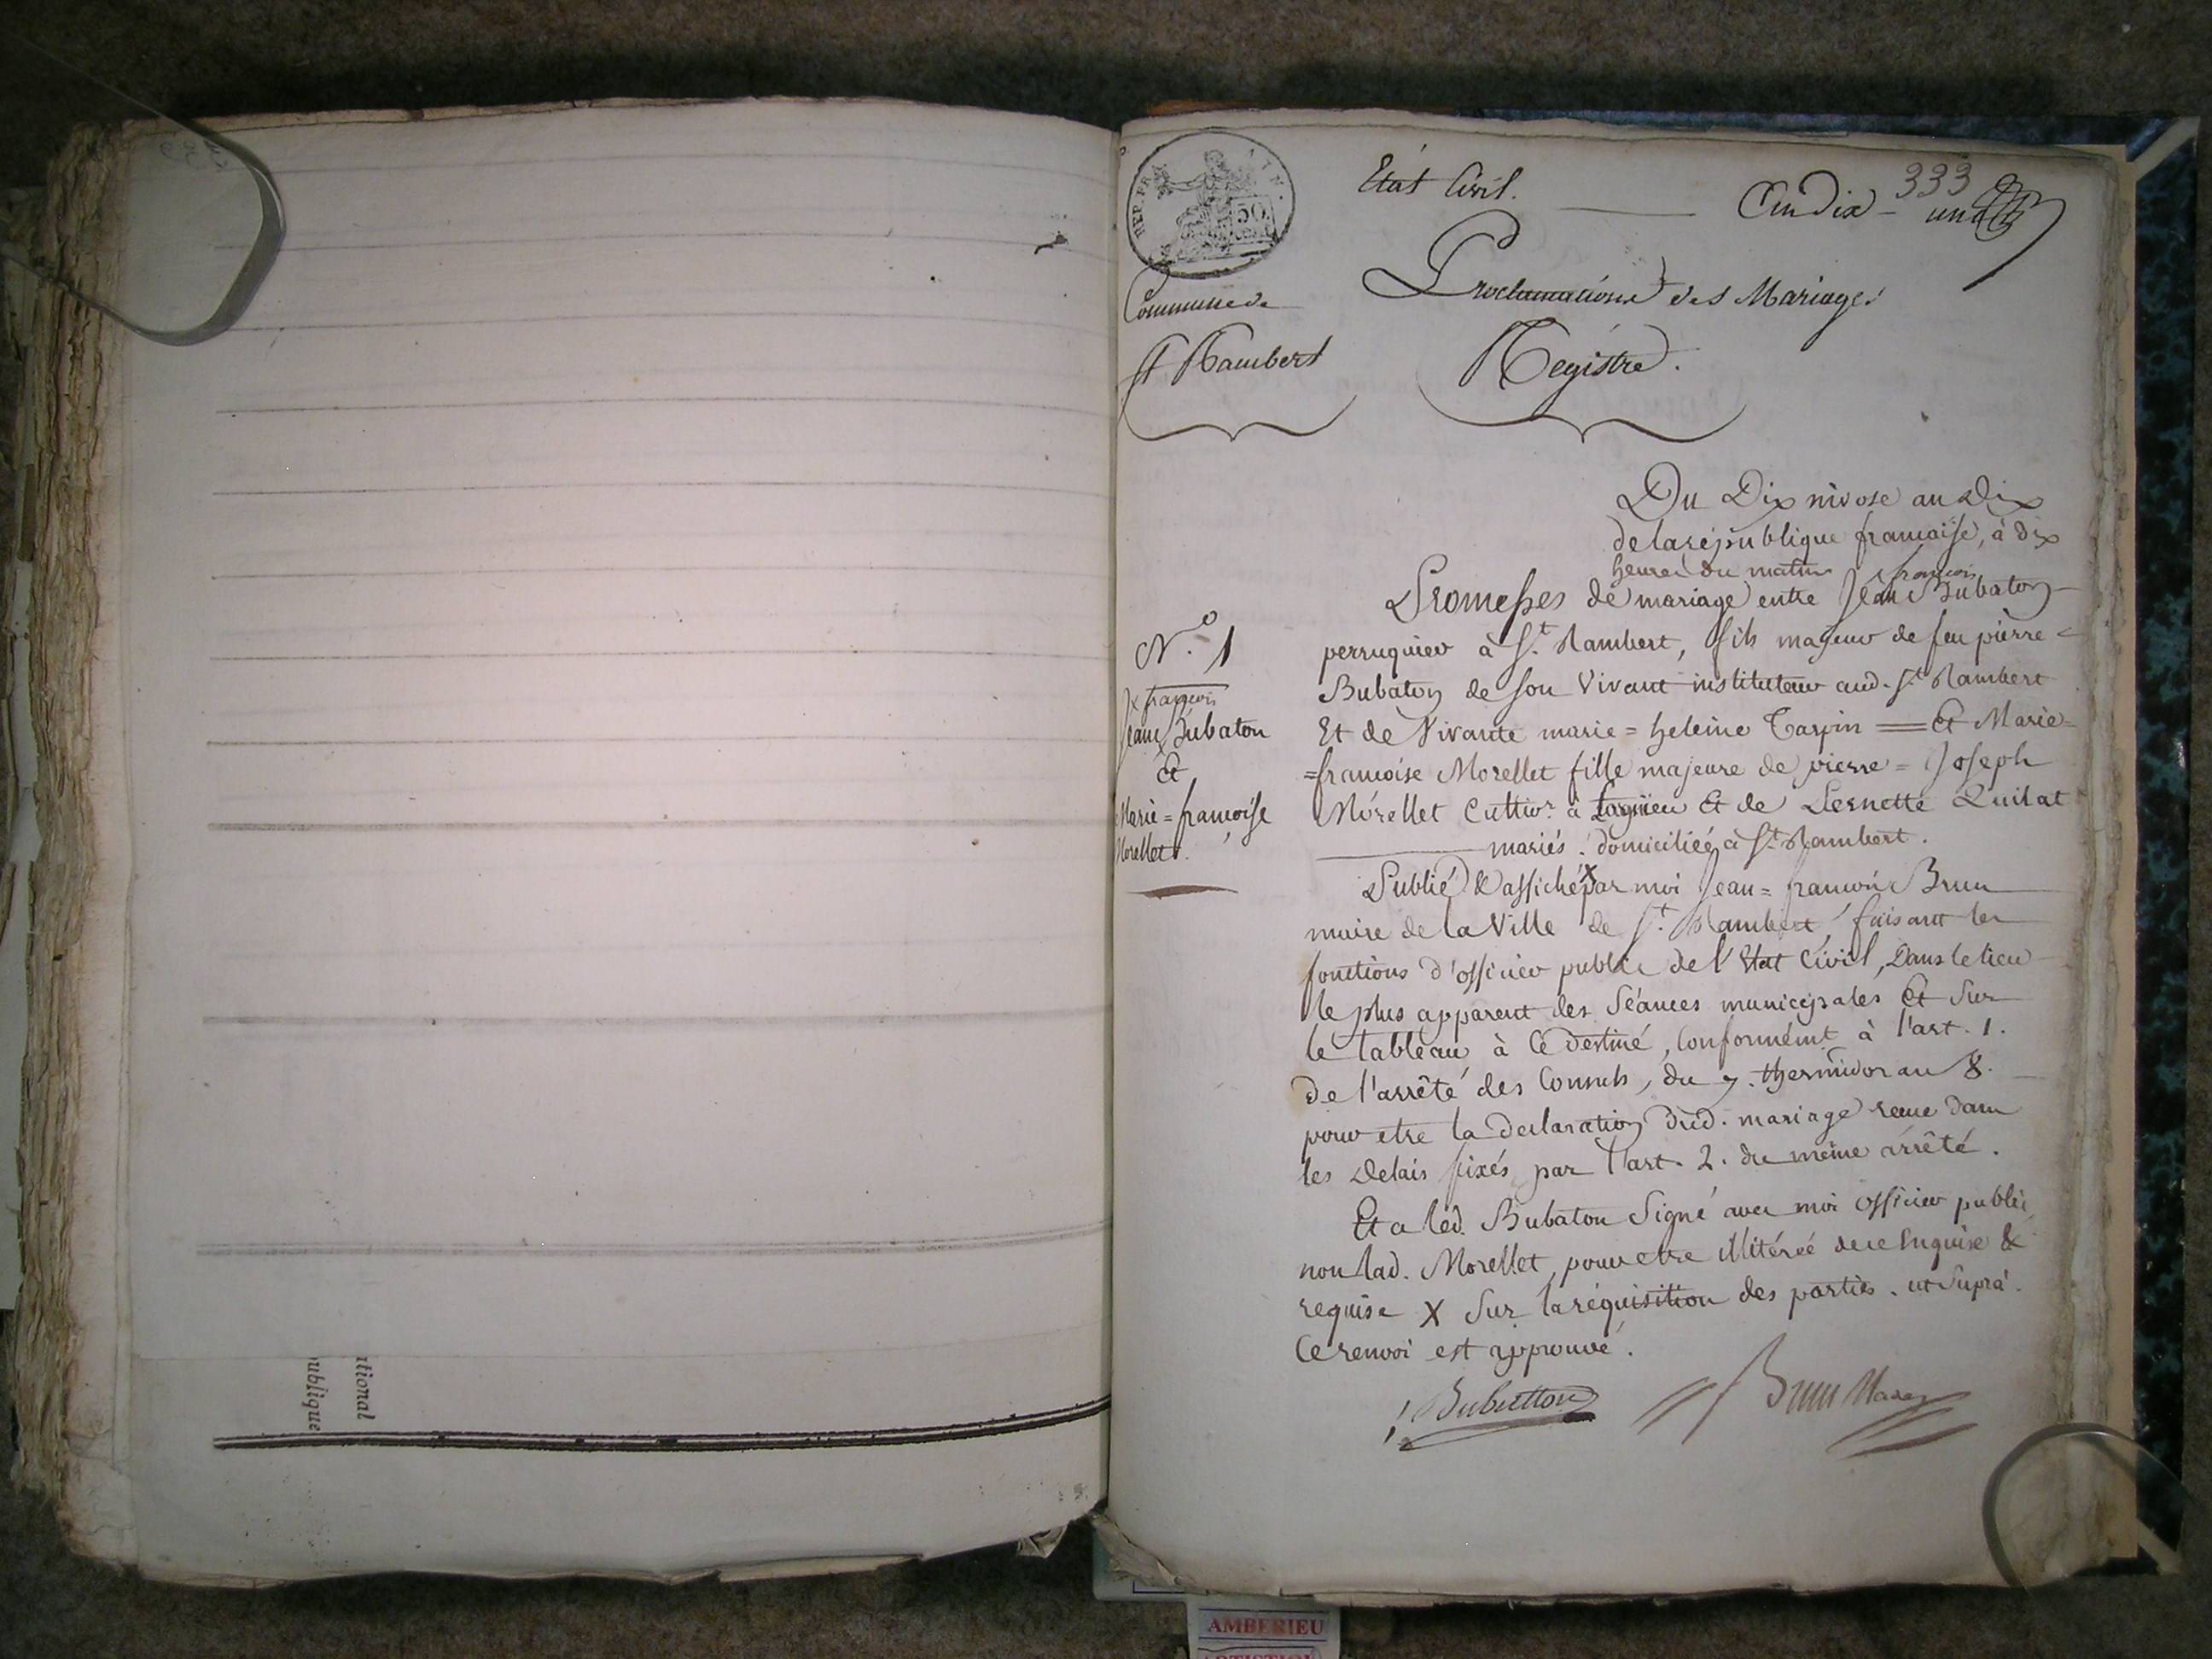 Etat Civil.
An Dix - un
333
REP. FRA
50
CENT
Commune de
St Rambert
Proclamations des Mariages
Registre.
Du Dix nivose an Dix
de la république francaise, à dix
heures du matin
N.o 1
x francois
Jean x Bubaton
Et
Marie = francoise
Morellet.
x francois
Promesses de mariage entre Jean x Bubaton
perruquier à St. Rambert, fils majeur de feu pierre =
Bubaton de son Vivant instituteur aud. St Rambert
Et de Vivante marie = heleine Tarpin == Et Marie
=francoise Morellet fille majeure de pierre = Joseph
Morellet Cultivr. à Lagnieu Et de Pernette Quilat
mariés. domiciliée à St. Rambert.
Publié & affiché x par moi Jean = francois Brun
maire de la Ville de St. Rambert, faisant les
fonctions d'officier public de l'Etat Civil, Dans le lieu
le plus apparent des Séances municipales Et Sur
le tableau à Ce destiné, Conformémt. à l'art. 1.
De l'arrêté des Consuls, du 7. thermidor an 8.
pour etre la declaration dud. mariage recue dans
les Delais fixés par l'art. 2. du même arrêté.
Et a led. Bubaton Signé avec moi officier public
non lad. Morellet, pour etre illitérée de ce Enquise &
requise X Sur la réquisition des parties. ut Supra.
Ce renvoi est approuvé.
Bubatton
Brun Maire
utional
ublique
AMBERIEU